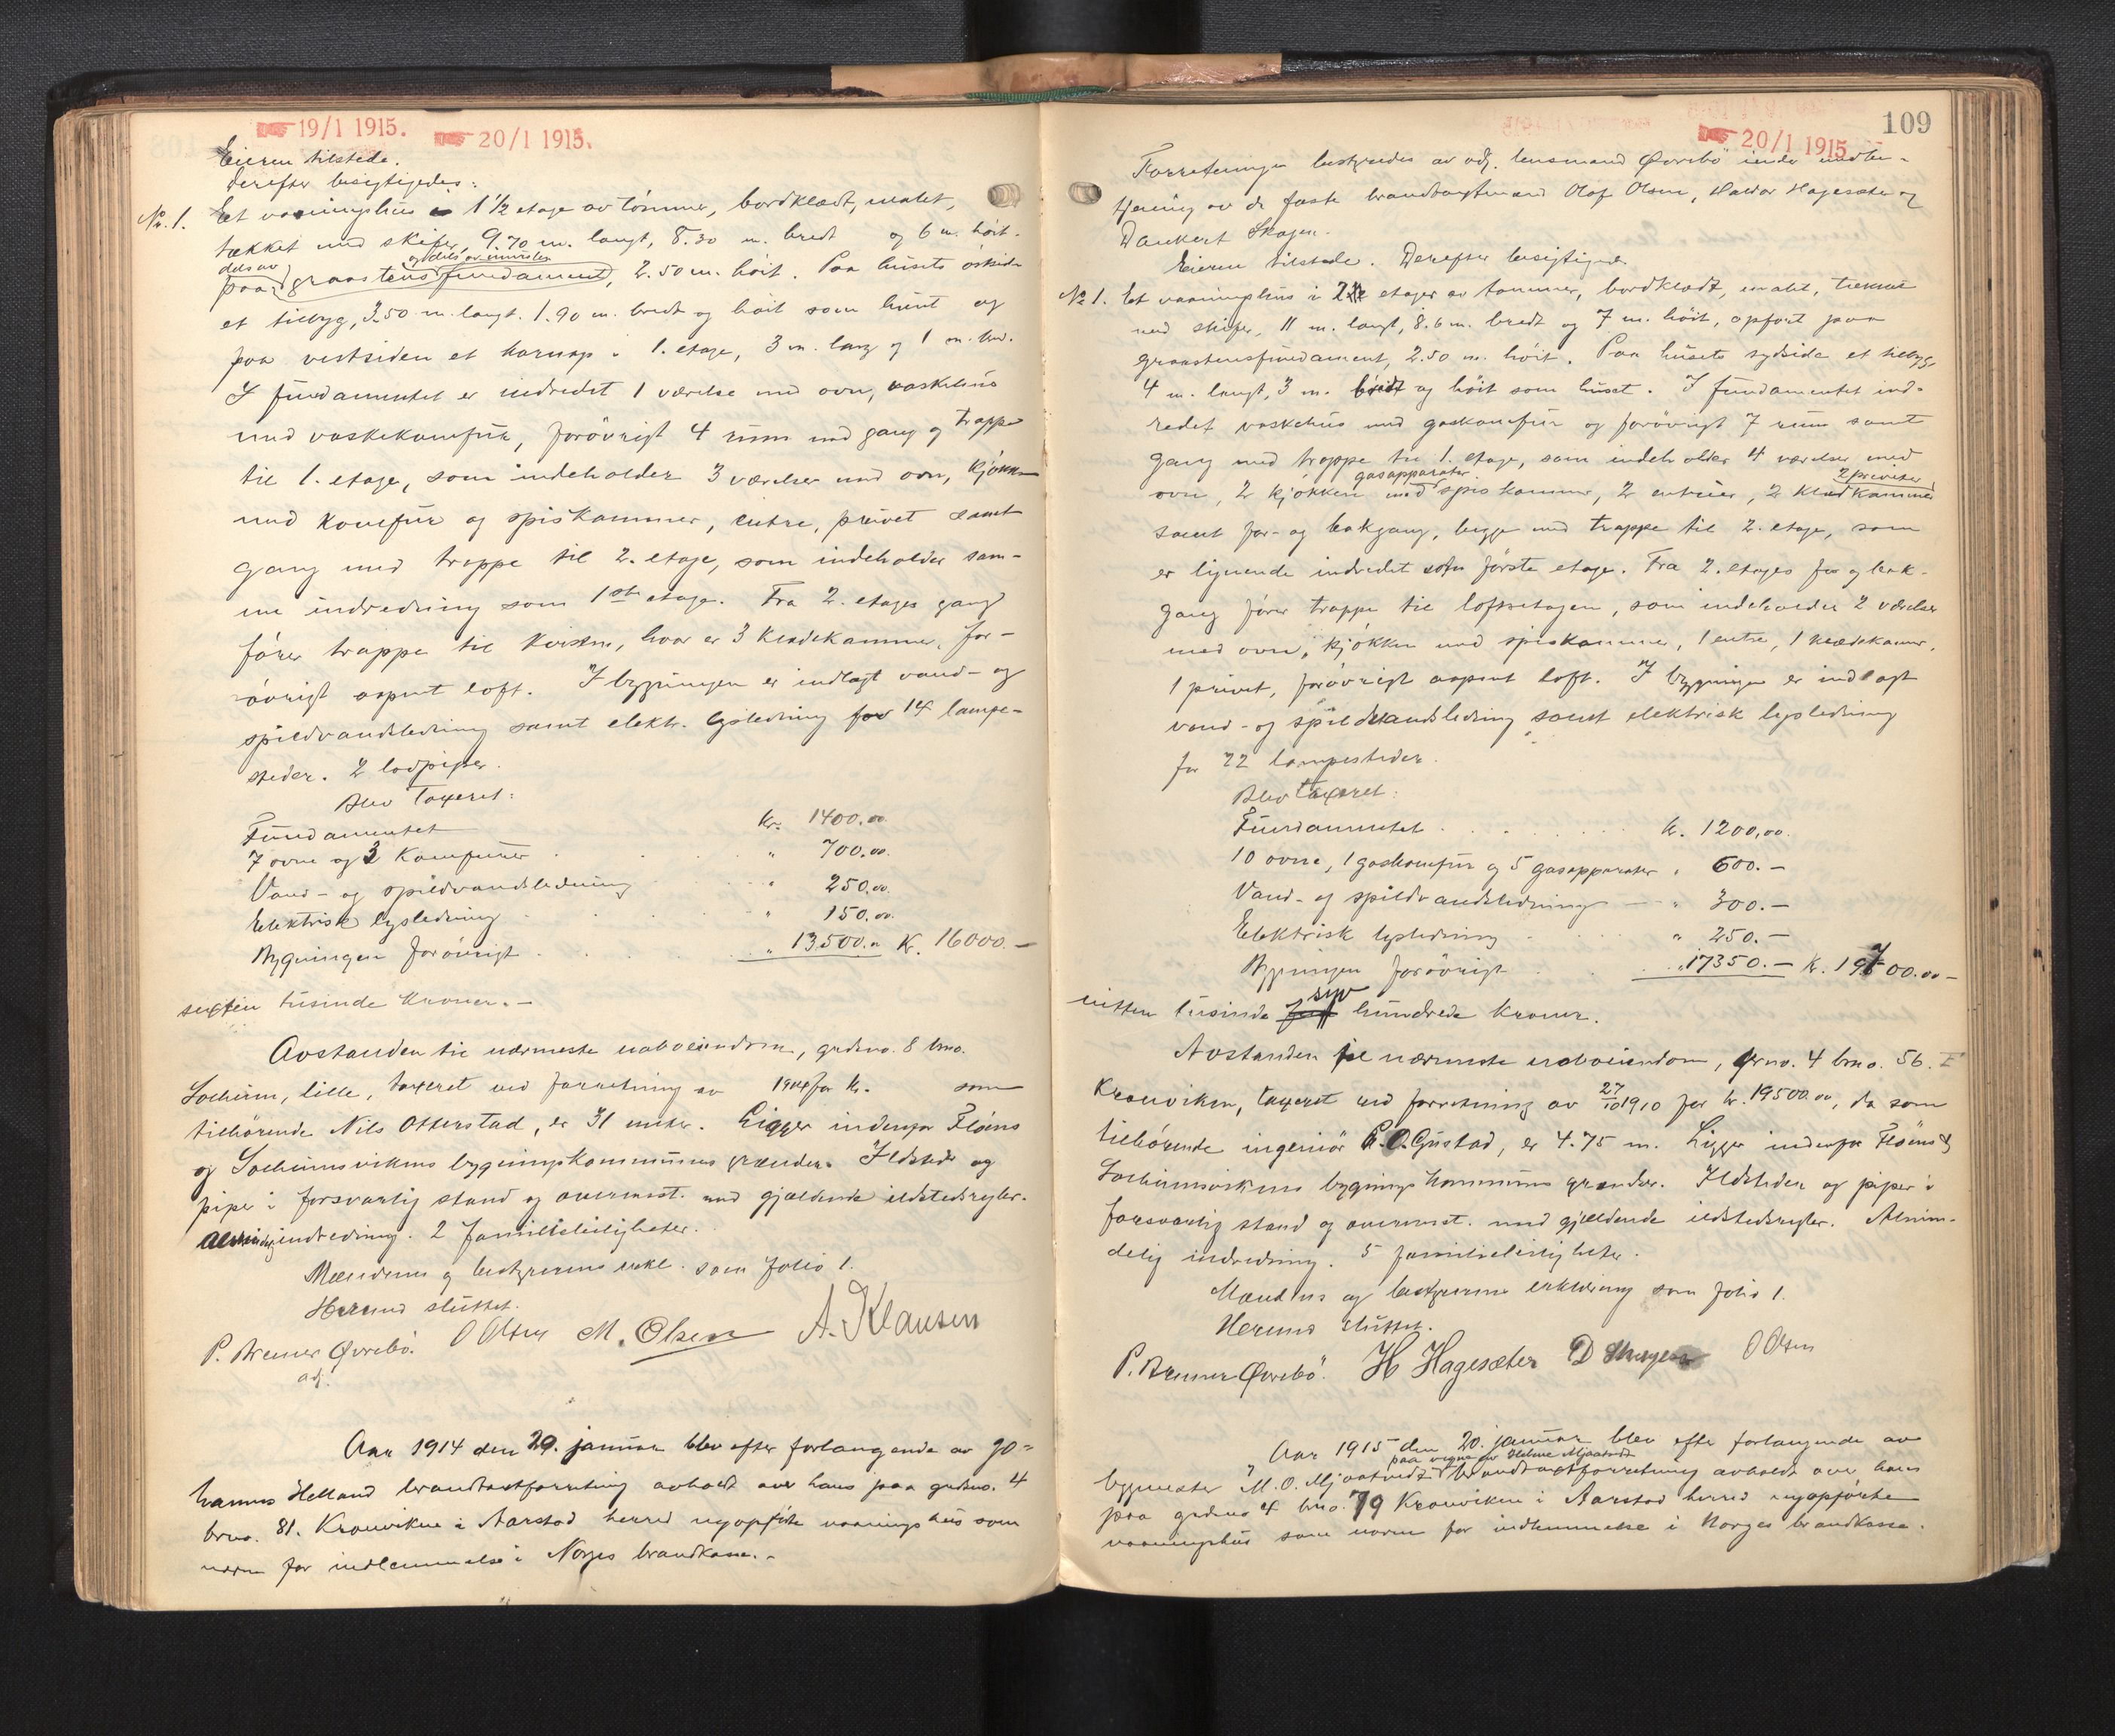 19/1 1915.
20/1 1915.
Eieren tilstede.
Derefter besigtigedes:
No. 1. Et vaaningshus 1 1/2 etage av tømmer, bordklædt, malet,
tækket med skifer, 9.70 m. langt, 8.30 m. bredt og 6 m. høit.
dels av og dels av mursten
paa graastensfundament, 2.50 m. høit. Paa husets østside
et tilbyg, 3.50 m. langt. 1.90 m. bredt og høit som huset og
paa vestsiden et karnap i 1. etage, 3 m. lang og 1 m. bred.
I fundamentet er indredet 1 værelse med ovn, vaskehus
med vaskekomfur, forøvrigt 4 rum med gang og trappe
til 1. etage, som indeholder 3 værelser med ovn, kjøkken
med komfur og spiskammer, entre, privet samt
gang med trappe til 2. etage, som indeholder sam-
me indredning som 1ste etage. Fra 2. etages gang
fører trappe til kvisten, hvor er 3 klædekammer, for-
øvrigt aapent loft. I bygningen er indlagt vand- og
spildvandsledning samt elektr. lysledning for 14 lampe-
steder. 2 lodpiper.
Blev taxeret:
Fundamentet kr. 1400.00
7 ovne og 3 komfurer " 700.00.
Vand- og spildvandsledning " 250.00.
Elektrisk lysledning " 150.00.
Bygningen forøvrigt " 13500.00 Kr. 16000.-
sexten tusinde kroner.-
Avstanden til nærmeste naboeiendom, gardsno. 8 bno.
Solheim, lille, taxeret ved forretning av 1904 for kr. som
tilhørende Nils Otterstad, er 31 meter. Ligger indenfor Fløens
og Solheimsvikens bygningskommunes grænder. Ildsteder og
piper i forsvarlig stand og overensst. med gjældende ildstedsregler.
Almindelig indredning. 2 familieleiligheter.
Mændenes og bestyrerens erkl. som folio 1.
Hermed sluttet.
P. Bremer Øvrebø. O Olsen M. Olsen A. Klausen
adj.
Aar 1914 den 20. januar blev efter forlangende av Jo-
hannes Helland brandtaxtforretning avholdt over hans paa gardsno. 4
brno. 81. Kronviken i Aarstad herred nyopførte vaaningshus som
norm for indlemmelse i Norges brandkasse.-
109
20/1 1915
Forretningen bestyredes av adj. lensmand Øvrebø under medbe-
tjening av de faste brandtaxtmænd Olaf Olsen, Haldor Hagesæter og
Dankert Skagen.
Eieren tilstede. Derefter besigtigedes
No 1. Et vaaningshus i 2 etager av tømmer, bordklædt, malet, tækket
med skifer, 11 m. langt, 8.6 m. bredt og 7 m. høit, opført paa
graastensfundament, 2.50 m. høit. Paa husets sydside et tilbyg,
4 m. langt, 3 m. bredt og høit som huset. I fundamentet ind-
redet vaskehus med gaskomfur og forøvrigt 7 rum samt
gang med trappe til 1. etage, som indeholder 4 værelser med
gasapparater 2 priveter
ovn, 2 kjøkken med spiskammer, 2 entreer, 2 klædkammer
samt for- og bakgang, begge med trappe til 2. etage, som
er lignende indredet som første etage. Fra 2. etages for og bak-
gang fører trappe til loftsetagen, som indeholder 2 værelser
med ovn, kjøkken med spiskammer, 1 entre, 1 klædekammer,
1 privet, forøvrigt aapent loft. I bygningen er indlagt
vand- og spildvandsledning samt elektrisk lysledning
for 22 lampesteder.
Blev taxeret:
Fundamentet kr. 1200,00.
10 ovne, 1 gaskomfur og 5 gasapparater " 600.-
Vand- og spildvandsledning " 300.-
Elektrisk lysledning " 250.-
Bygningen forøvrigt " 17350.- Kr. 19700.00-
syv
nitten tusinde fem hundrede kroner.
Avstanden til nærmeste naboeiendom, grno. 4 bno. 56.
Kronviken, taxeret ved forretning av 27/10 1910 for kr. 19500.00, da som
tilhørende ingeniør P. O. Gustad, er 4.75 m. Ligger indenfor Fløens &
Solheimsvikens bygningskommunes grænder. Ildsteder og piper i
forsvarlig stand og overensst. med gjældende ildstedsregler. Almin-
delig indredning. 5 familieleiligheter.
Mændenes og bestyrerens erklæring som folio 1.
Hermed sluttet.
P. Bremer Øvrebø. H Hagesæter D Skagen O Olsen
Aar 1915 den 20. januar blev efter forlangende av
paa vegne av Mjaatvedt
bygmester M. O. Mjaatvedt brandtaxtforretning avholdt over hans
paa gardsno 4 bno. 79 Kronviken i Aarstad herred nyopførte
vaaningshus som norm for indlemmelse i Norges brandkasse.